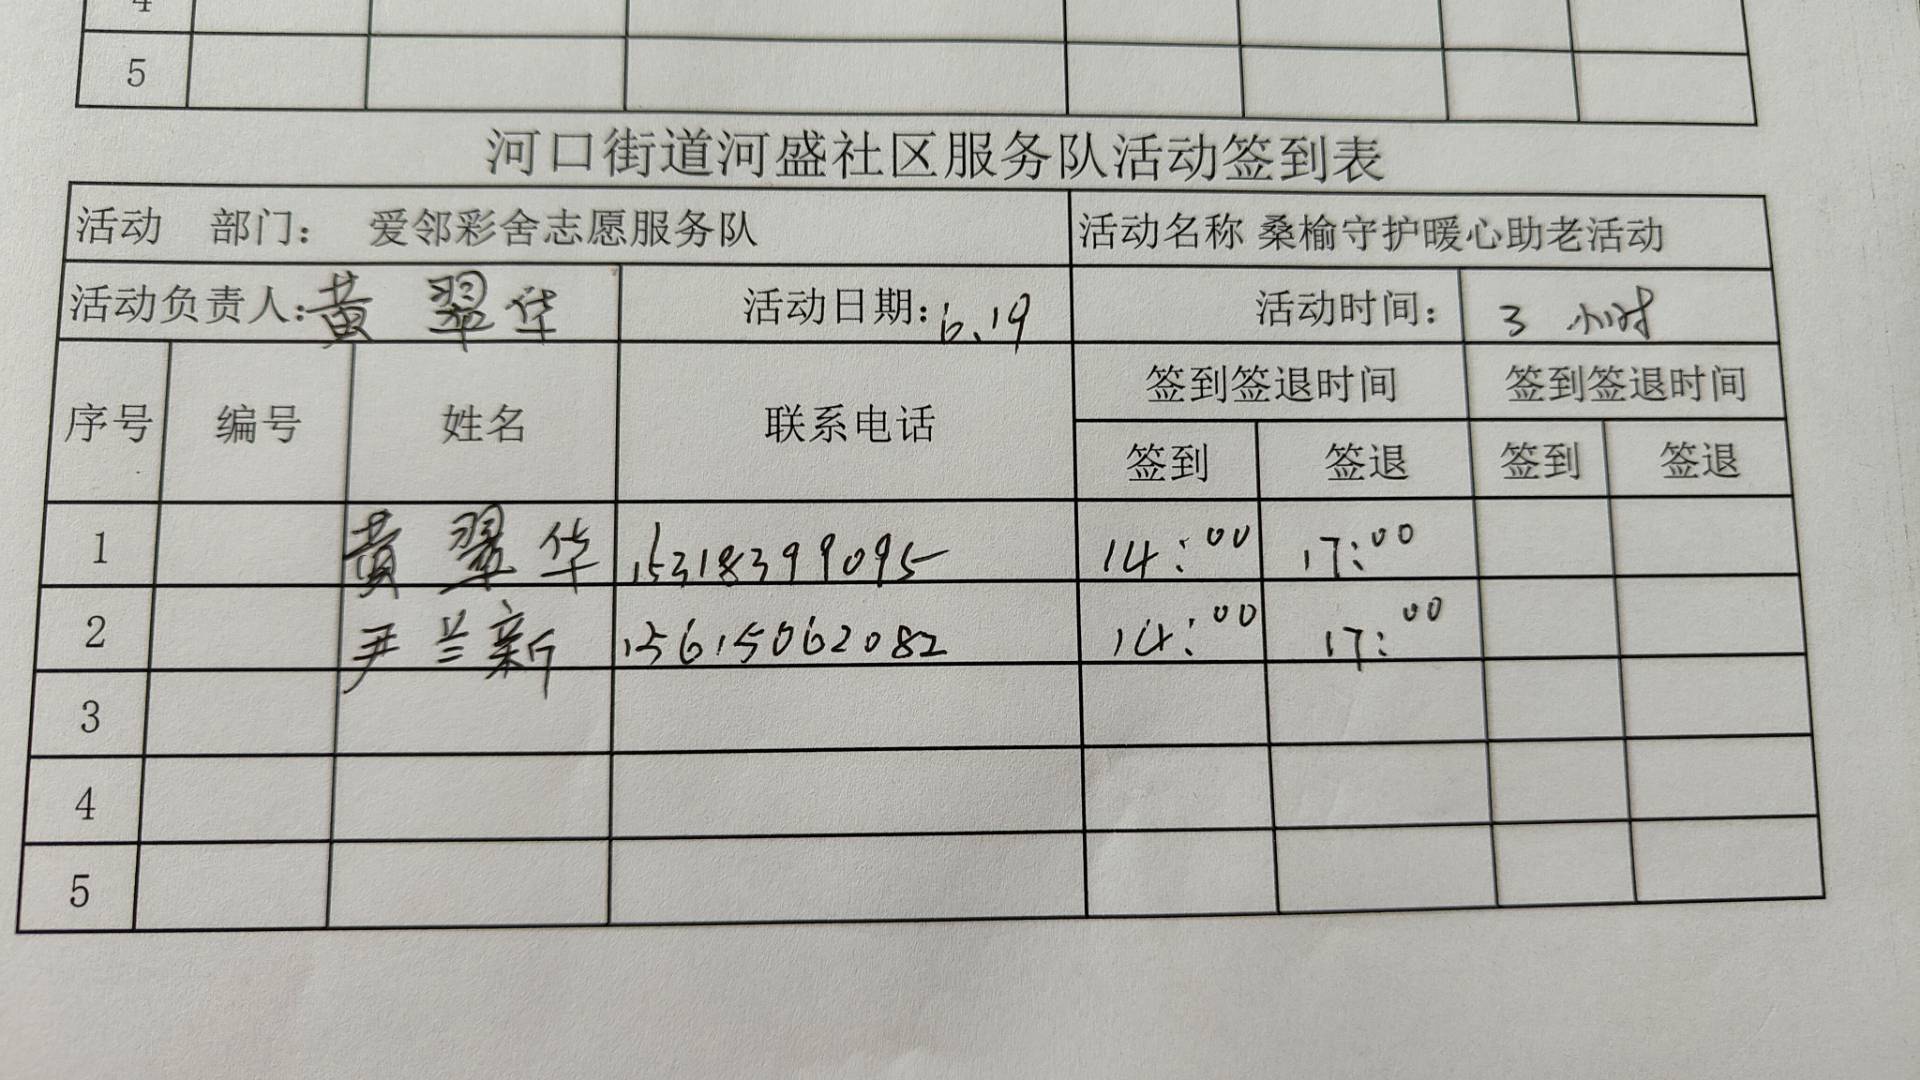 4
5
河口街道河盛社区服务队活动签到表
活动 部门： 爱邻彩舍志愿服务队 活动名称 桑榆守护暖心助老活动
活动负责人：黄翠华 活动日期：6.19 活动时间： 3 小时
序号 编号 姓名 联系电话 签到签退时间 签到签退时间
签到 签退 签到 签退
1 黄翠华 15318399095 14:00 17:00
2 尹兰新 15615062082 14:00 17:00
3
4
5